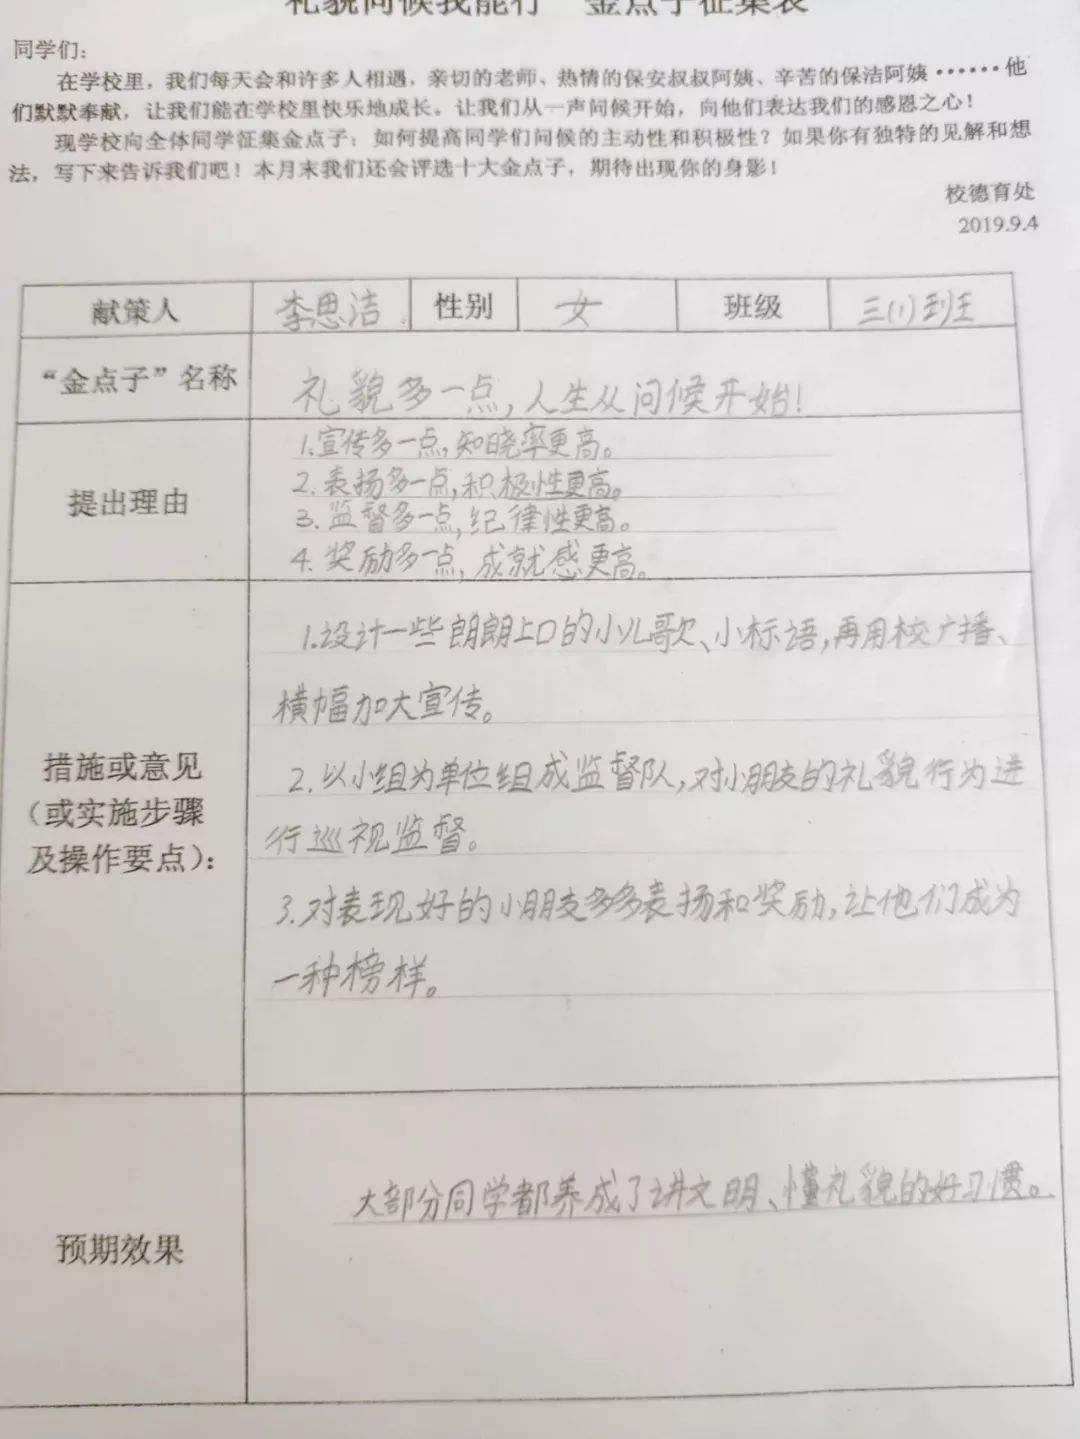 礼貌问候我能行 金点子征集表
同学们：
在学校里，我们每天会和许多人相遇，亲切的老师、热情的保安叔叔阿姨、辛苦的保洁阿姨……他
们默默奉献，让我们能在学校里快乐地成长。让我们从一声问候开始，向他们表达我们的感恩之心！
现学校向全体同学征集金点子：如何提高同学们问候的主动性和积极性？如果你有独特的见解和想
法，写下来告诉我们吧！本月末我们还会评选十大金点子，期待出现你的身影！
校德育处
2019.9.4
献策人 李思洁 性别 女 班级 三(1)班
“金点子”名称 礼貌多一点，人生从问候开始！
提出理由
1.宣传多一点，知晓率更高。
2.表扬多一点，积极性更高。
3.监督多一点，纪律性更高。
4.奖励多一点，成就感更高。
措施或意见
（或实施步骤
及操作要点）：
1.设计一些朗朗上口的小儿歌、小标语，再用校广播、
横幅加大宣传。
2.以小组为单位组成监督队，对小朋友的礼貌行为进
行巡视监督。
3.对表现好的小朋友多多表扬和奖励，让他们成为
一种榜样。
预期效果
大部分同学都养成了讲文明、懂礼貌的好习惯。